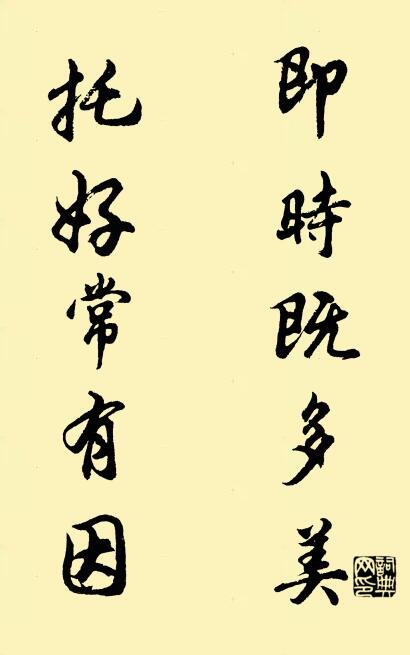 即時既多美
詞典網印
托好常有因